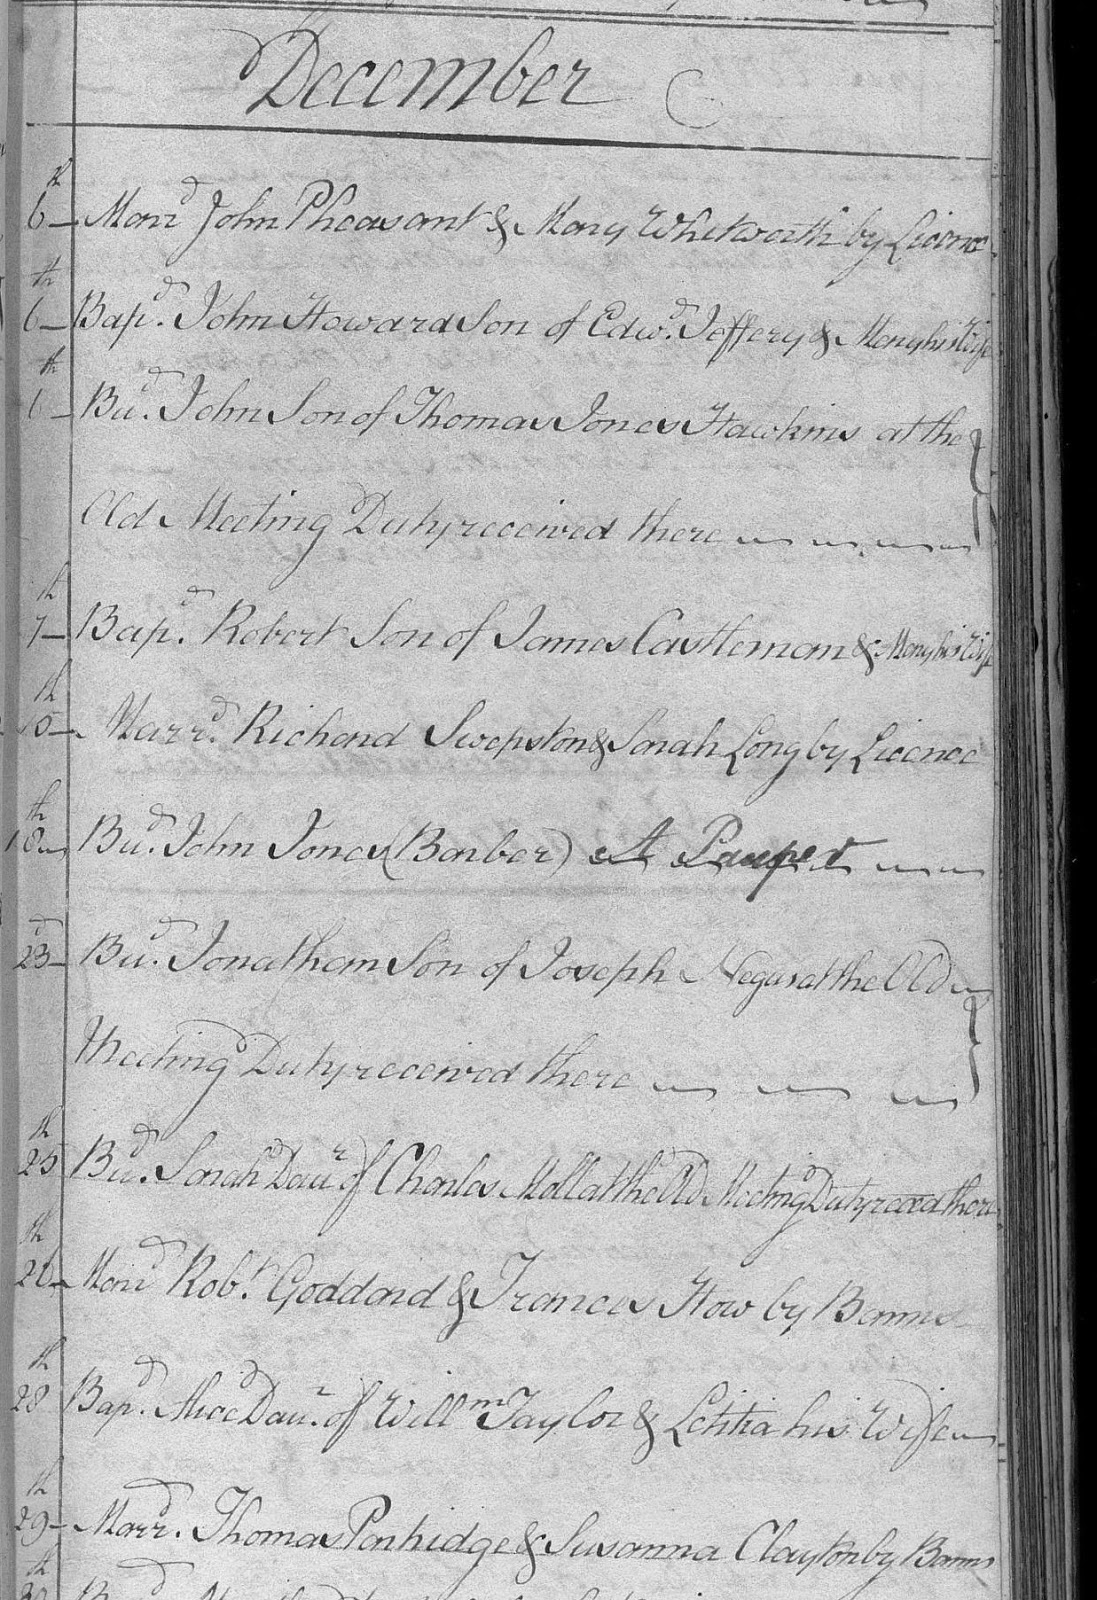 December
6th Marrd John Pheasant & Mary Whitworth by Licence
6th Bapd. John Howard Son of Edwd. Jeffery & Mary his Wife
6th Bud. John Son of Thomas Jones Hawkins at the
Old Meeting Duty received there
7th Bapd. Robert Son of James Castleman & Mary his Wife
10th Marrd. Richard Swepston & Sarah Long by Licence
18th Bud. John Jones (Barber) A Pauper
23d Bud. Jonathan Son of Joseph Negus at the Old
Meeting Duty received there
25th Bud. Sarah Daur of Charles Moll at the Old Meeting Duty recd there
26th Marrd Robt. Goddard & Frances How by Banns
28th Bapd. Alice Daur. of Willm Taylor & Letitia his Wife
29th Marrd. Thomas Partridge & Susanna Clayton by Banns